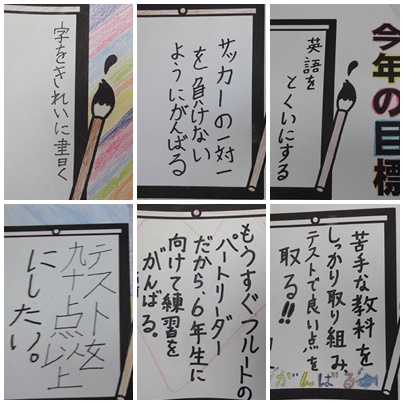 字をきれいに書く
サッカーの一対一
を負けない
ようにがんばる
今年の目標
英語を
とくいにする
テストを
九十点以上
にしたい。
もうすぐフルートの
パートリーダー
だから、6年生に
向けて練習を
がんばる。
苦手な教科を
しっかり取り組み、
テストで良い点を
取る!!
がんばる